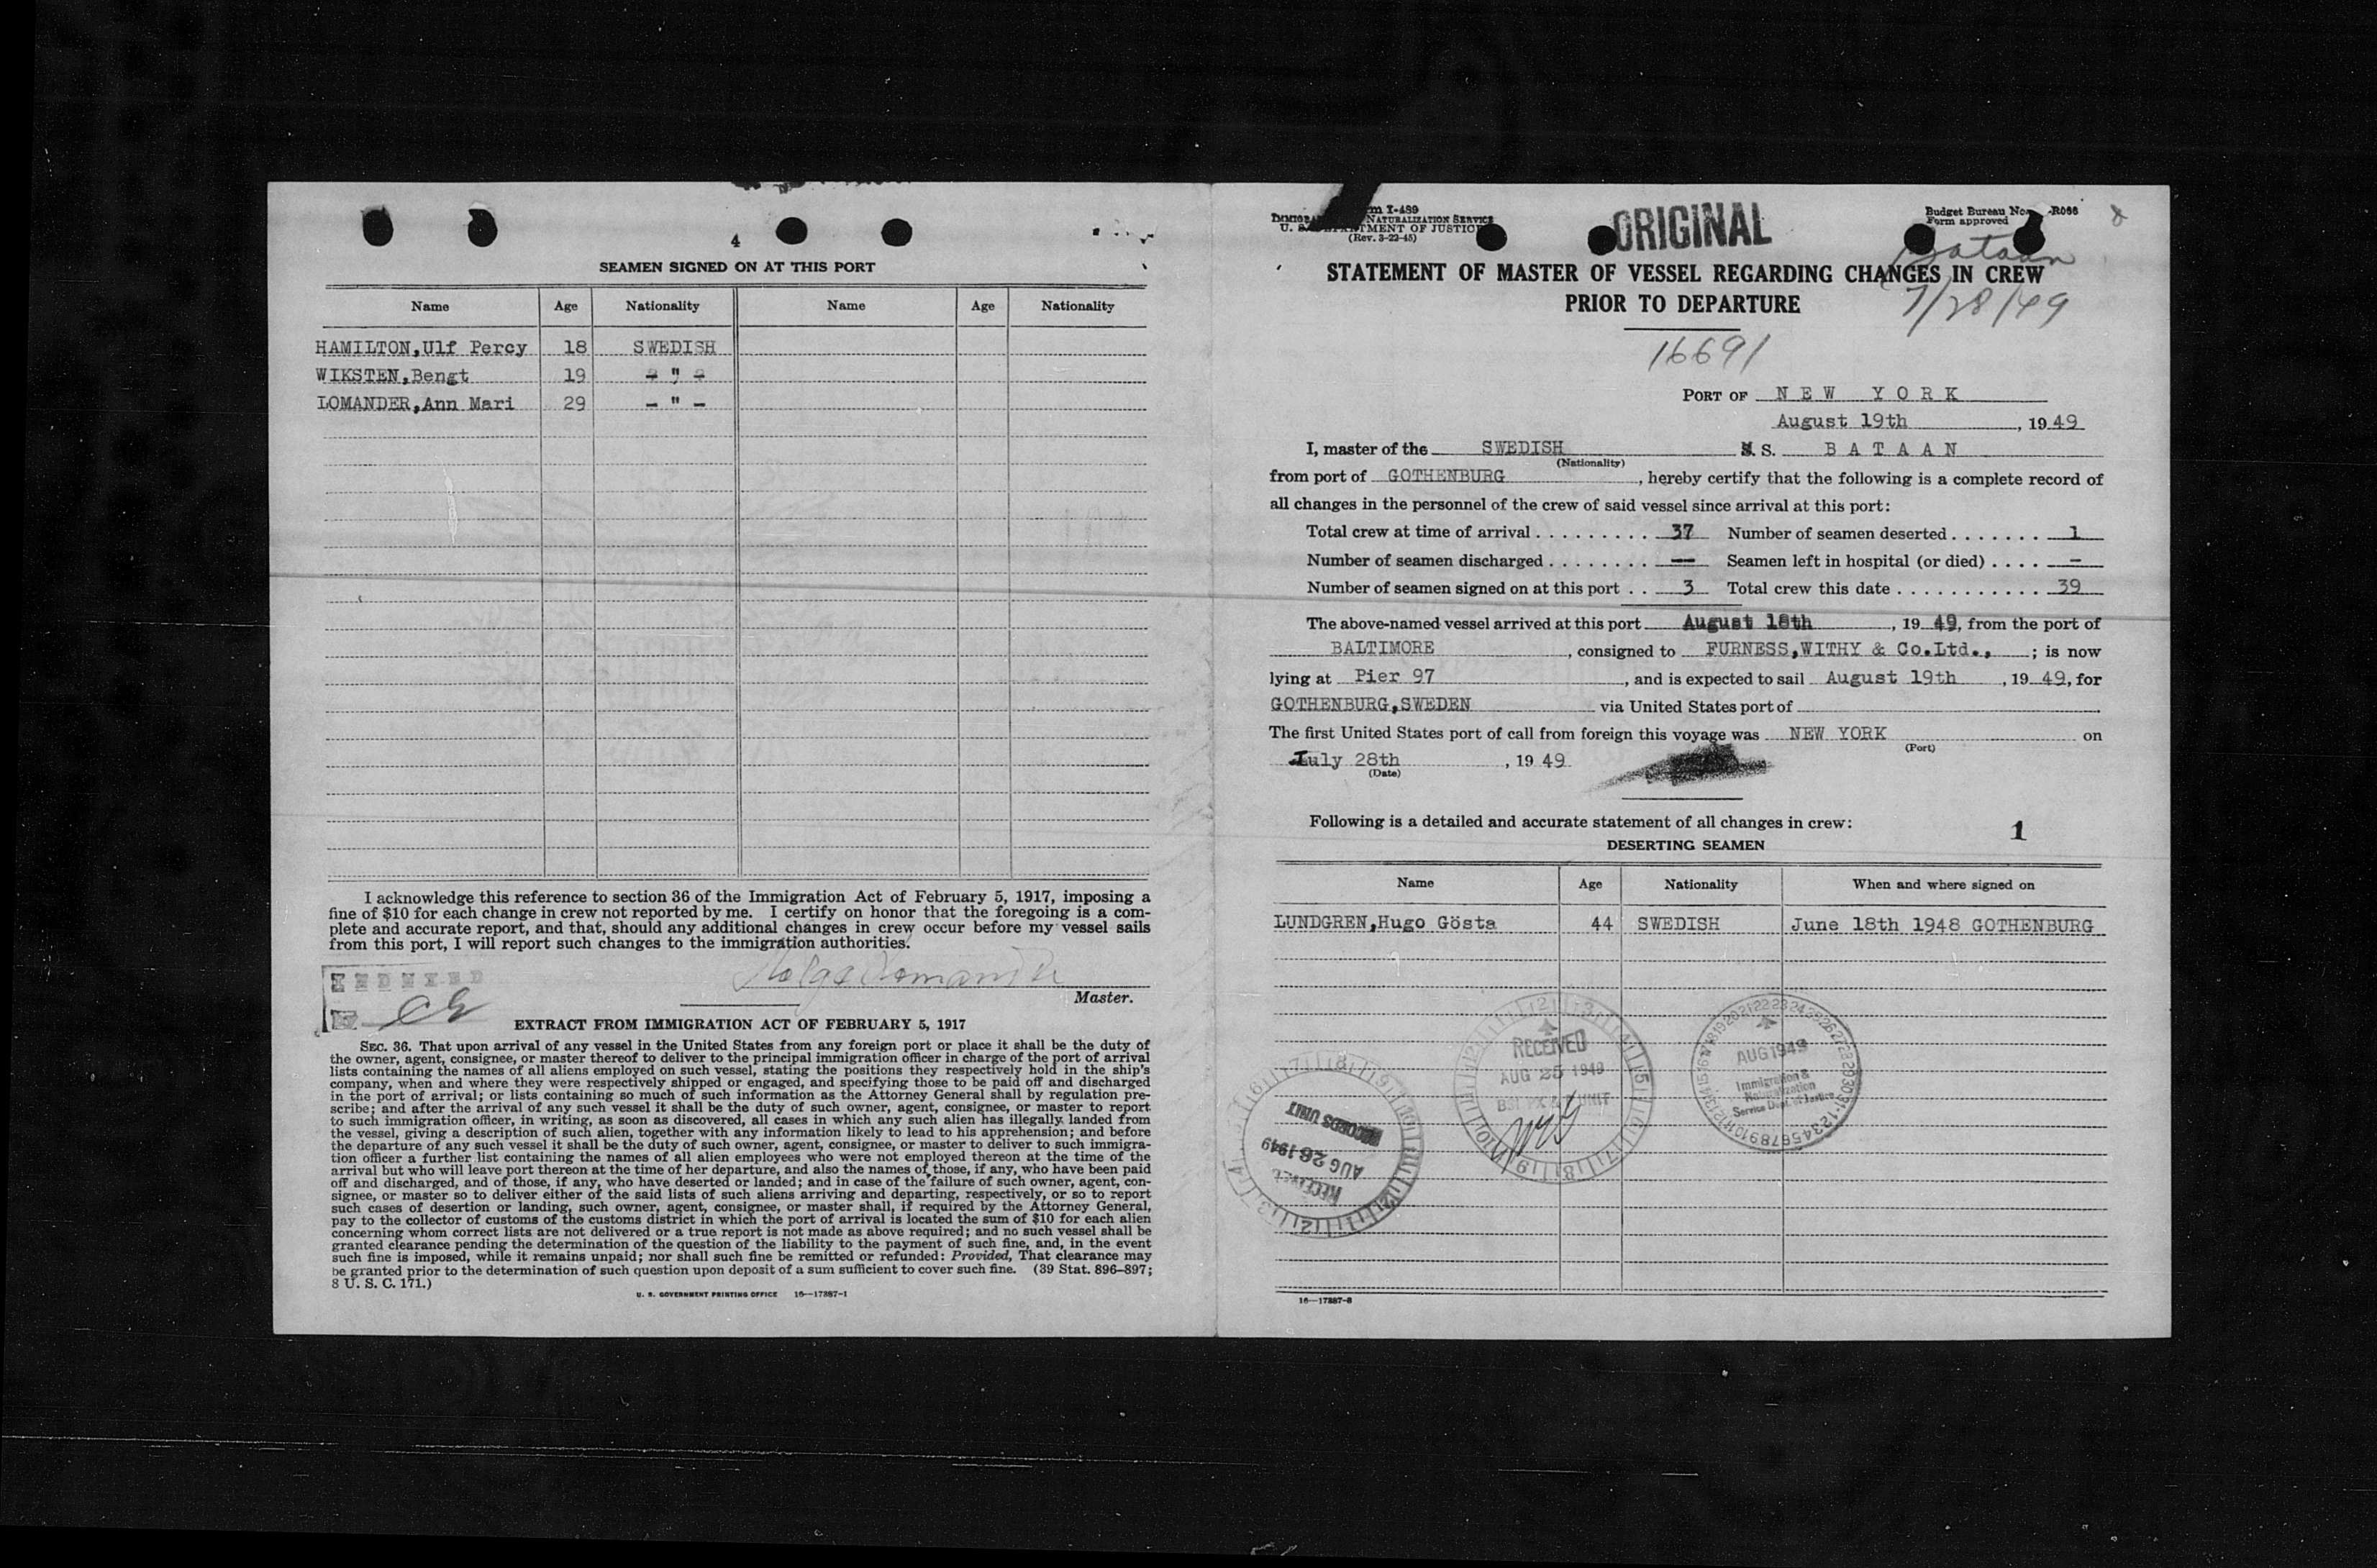 4
SEAMEN SIGNED ON AT THIS PORT
Name Age Nationality Name Age Nationality
HAMILTON,Ulf Percy 18 SWEDISH
WIKSTEN,Bengt 19 - " -
LOMANDER,Ann Mari 29 - " -
I acknowledge this reference to section 36 of the Immigration Act of February 5, 1917, imposing a
fine of $10 for each change in crew not reported by me. I certify on honor that the foregoing is a com-
plete and accurate report, and that, should any additional changes in crew occur before my vessel sails
from this port, I will report such changes to the immigration authorities.
INDEXED
Master.
EXTRACT FROM IMMIGRATION ACT OF FEBRUARY 5, 1917
SEC. 36. That upon arrival of any vessel in the United States from any foreign port or place it shall be the duty of
the owner, agent, consignee, or master thereof to deliver to the principal immigration officer in charge of the port of arrival
lists containing the names of all aliens employed on such vessel, stating the positions they respectively hold in the ship's
company, when and where they were respectively shipped or engaged, and specifying those to be paid off and discharged
in the port of arrival; or lists containing so much of such information as the Attorney General shall by regulation pre-
scribe; and after the arrival of any such vessel it shall be the duty of such owner, agent, consignee, or master to report
to such immigration officer, in writing, as soon as discovered, all cases in which any such alien has illegally landed from
the vessel, giving a description of such alien, together with any information likely to lead to his apprehension; and before
the departure of any such vessel it shall be the duty of such owner, agent, consignee, or master to deliver to such immigra-
tion officer a further list containing the names of all alien employees who were not employed thereon at the time of the
arrival but who will leave port thereon at the time of her departure, and also the names of those, if any, who have been paid
off and discharged, and of those, if any, who have deserted or landed; and in case of the failure of such owner, agent, con-
signee, or master so to deliver either of the said lists of such aliens arriving and departing, respectively, or so to report
such cases of desertion or landing, such owner, agent, consignee, or master shall, if required by the Attorney General,
pay to the collector of customs of the customs district in which the port of arrival is located the sum of $10 for each alien
concerning whom correct lists are not delivered or a true report is not made as above required; and no such vessel shall be
granted clearance pending the determination of the question of the liability to the payment of such fine, and, in the event
such fine is imposed, while it remains unpaid; nor shall such fine be remitted or refunded: Provided, That clearance may
be granted prior to the determination of such question upon deposit of a sum sufficient to cover such fine. (39 Stat. 896–897;
8 U. S. C. 171.)
U. S. GOVERNMENT PRINTING OFFICE 16—17387-1
I-489
NATURALIZATION SERVICE
DEPARTMENT OF JUSTICE
(Rev. 3-22-45)
ORIGINAL
Budget Bureau No. -R066
Form approved
Bataan
7/28/49
STATEMENT OF MASTER OF VESSEL REGARDING CHANGES IN CREW
PRIOR TO DEPARTURE
16691
PORT OF NEW YORK
August 19th, 1949
I, master of the SWEDISH S. S. BATAAN
(Nationality)
from port of GOTHENBURG, hereby certify that the following is a complete record of
all changes in the personnel of the crew of said vessel since arrival at this port:
Total crew at time of arrival . . . . . . . . . 37 Number of seamen deserted . . . . . . . 1
Number of seamen discharged . . . . . . . . — Seamen left in hospital (or died) . . . . -
Number of seamen signed on at this port . . 3 Total crew this date . . . . . . . . . . . . 39
The above-named vessel arrived at this port August 18th, 1949, from the port of
BALTIMORE, consigned to FURNESS,WITHY & Co.Ltd.,; is now
lying at Pier 97, and is expected to sail August 19th, 1949, for
GOTHENBURG,SWEDEN via United States port of
The first United States port of call from foreign this voyage was NEW YORK on
(Port)
July 28th, 1949
(Date)
Following is a detailed and accurate statement of all changes in crew:
1
DESERTING SEAMEN
Name Age Nationality When and where signed on
LUNDGREN,Hugo Gösta 44 SWEDISH June 18th 1948 GOTHENBURG
RECEIVED
AUG 25 1949
AUG 1949
Immigration &
Naturalization
Service Dept. of Justice
RECORDS UNIT
AUG 26 1949
RECEIVED
16—17387-8